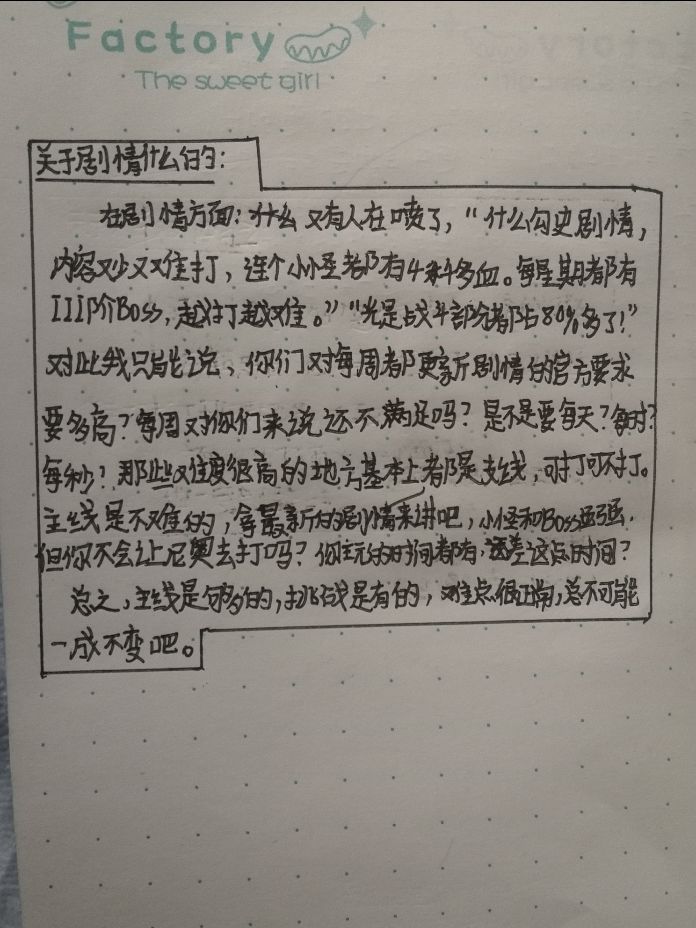 Factory
The sweet girl
关于剧情什么的：
在剧情方面：什么又有人在喷了，“什么勾史剧情，
内容又少又难打，连个小怪都有4来4多血。每星期都有
III阶Boss，越打越难。”“光是战斗部分都占80%多了！”
对此我只能说，你们对每周都更新剧情的官方要求
要多高？每周对你们来说还不满足吗？是不是要每天？每时？
每秒？那些难度很高的地方基本上都是支线，可打可不打。
主线是不难的，拿最新的剧情来讲吧，小怪和Boss虽强，
但你不会让尼奥去打吗？你玩的时间都有，还差这点时间？
总之，主线是够多的，挑战是有的，难点很正常，总不可能
一成不变吧。